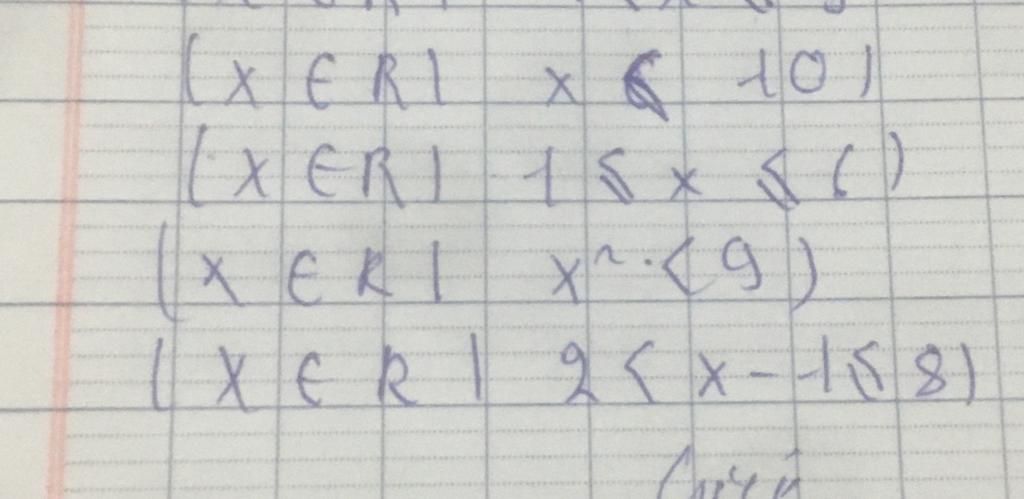 (x ∈ R | x ≤ 10)
(x ∈ R | -1 ≤ x ≤ 6)
(x ∈ R | x² < 9)
(x ∈ R | 2 < x - 1 ≤ 8)